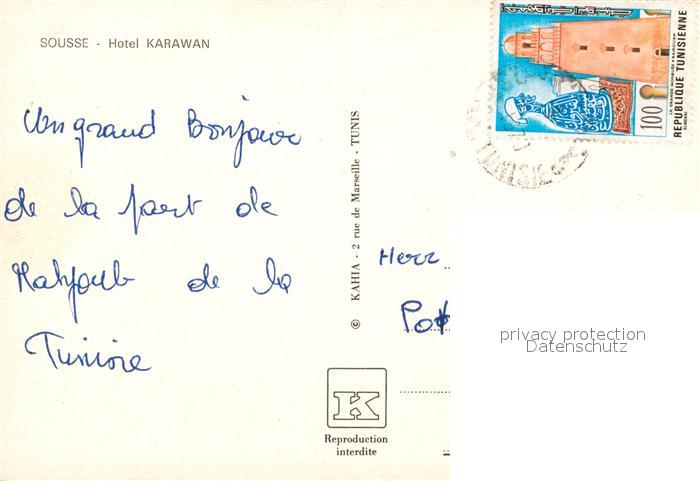 SOUSSE - Hotel KARAWAN
Un grand Bonjour
de la part de
Mahjoub de la
Tunisie
© KAHIA - 2 rue de Marseille - TUNIS
Herr
K
Reproduction
interdite
100
REPUBLIQUE TUNISIENNE
LA GRANDE MOSQUÉE KAIROUAN
privacy protection
Datenschutz